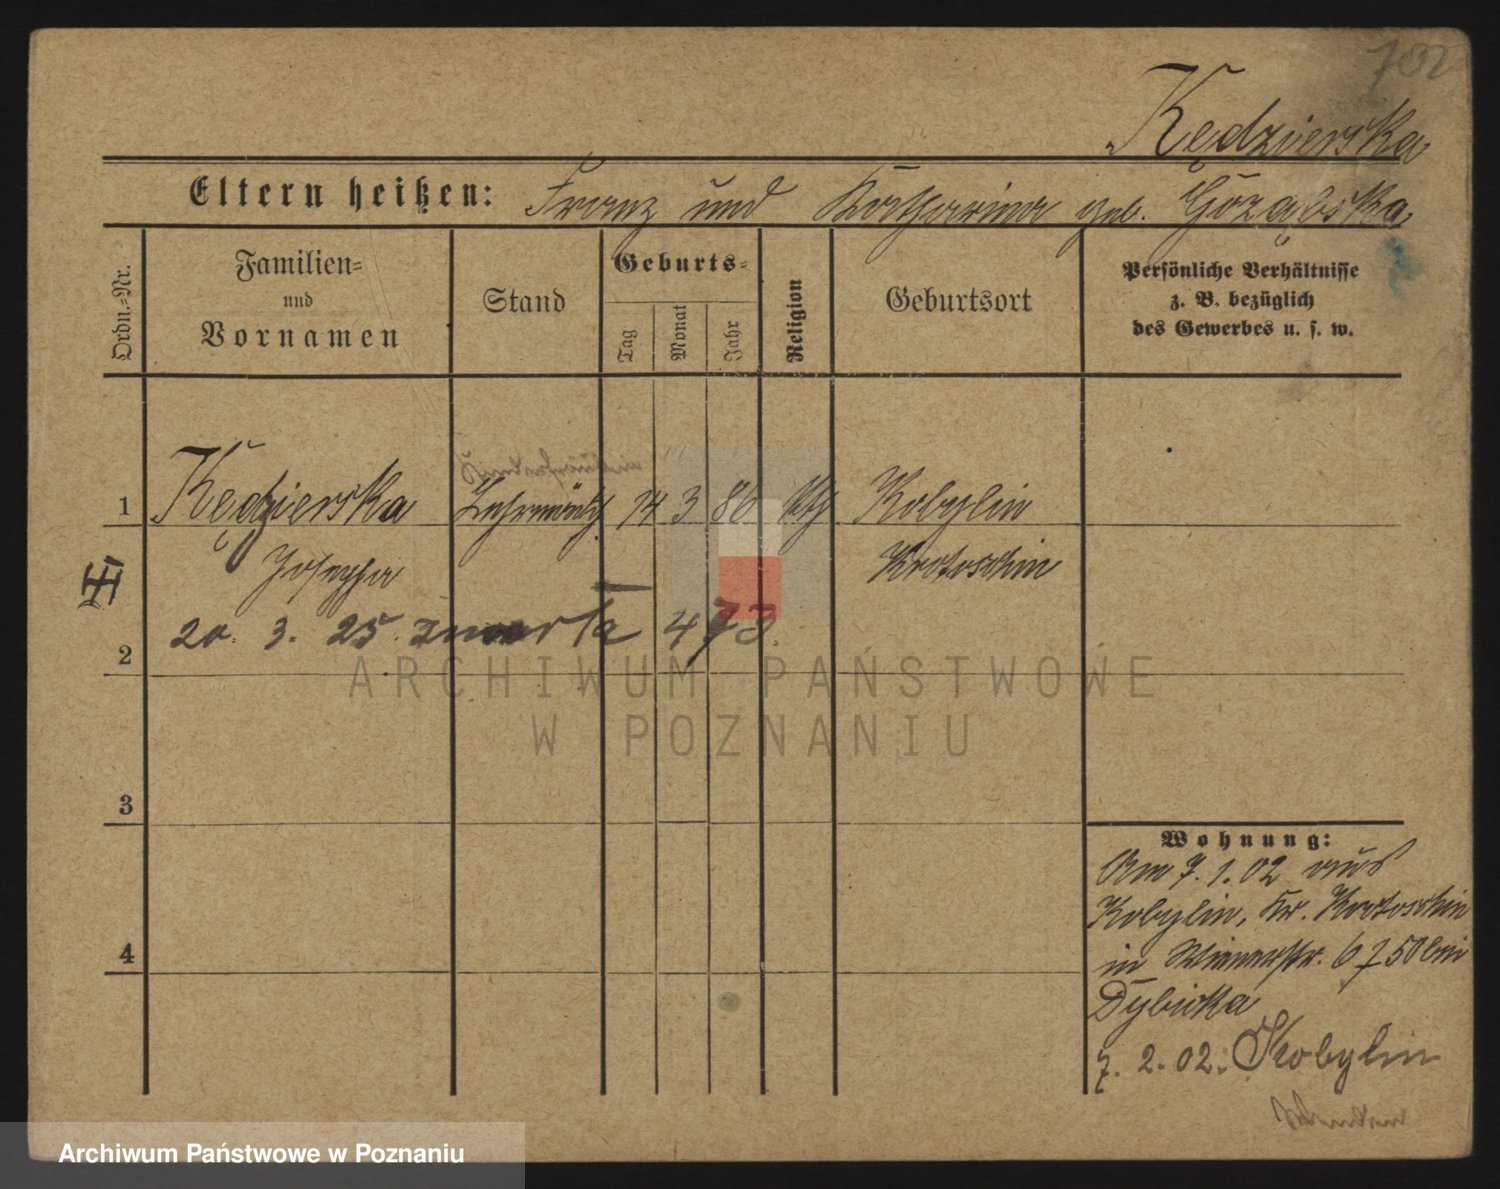 702
Kędzierska
Eltern heißen: Franz und Katharina geb.
Ordn.-Nr.
Familien-
und
Vornamen
Stand
Geburts-
Tag
Monat
Jahr
Religion
Geburtsort
Persönliche Verhältnisse
z. B. bezüglich
des Gewerbes u. s. w.
1 Kędzierska 14 3 86 kth Kobylin
Josepha Krotoschin
20. 3. 25. zmarła 473.
2
ARCHIWUM PAŃSTWOWE
W POZNANIU
3
4
Wohnung:
Am 7.1.02 aus
Kobylin, Kr. Krotoschin
in Wienerstr. 6 bei
Dybicka
7. 2. 02. Kobylin
Archiwum Państwowe w Poznaniu